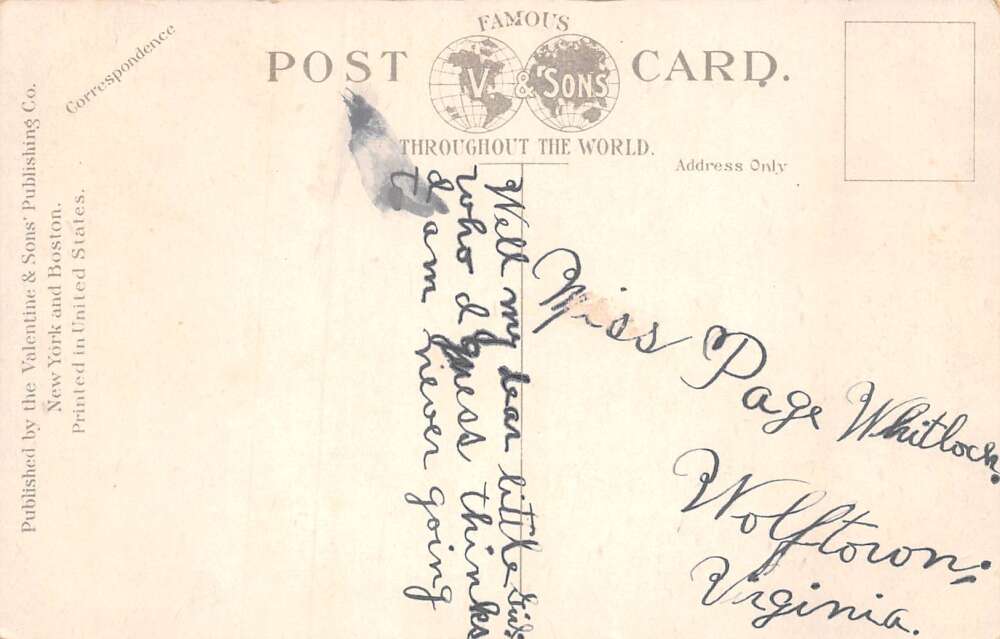 FAMOUS
POST CARD.
V. & SONS
THROUGHOUT THE WORLD.
Correspondence
Address Only
Published by the Valentine & Sons' Publishing Co.
New York and Boston.
Printed in United States.
Well my dear little
who I guess thinks
I am never going
t
Miss Page Whitlock.
Wolftown,
Virginia.